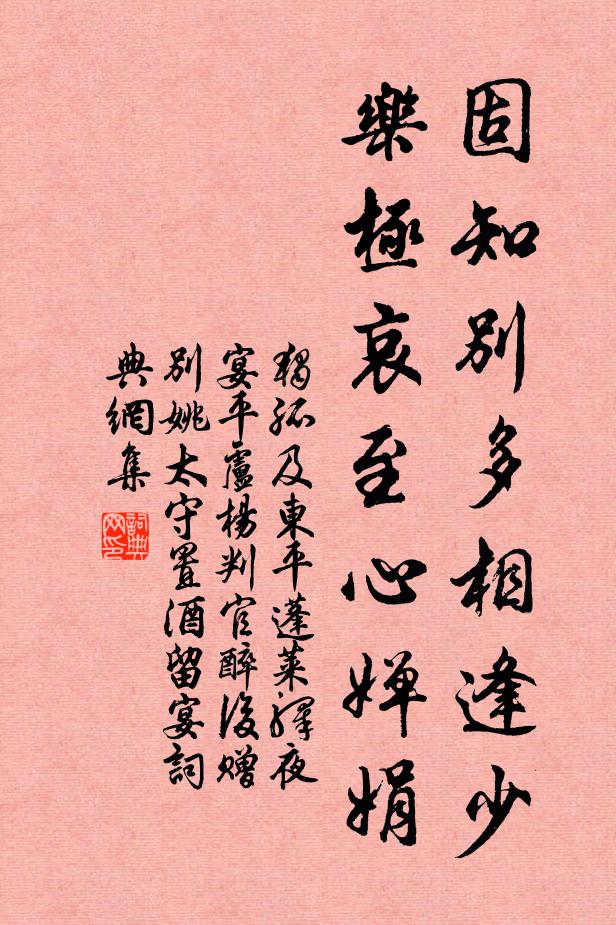 固知別多相逢少
樂極哀至心嬋娟
獨孤及東平蓬萊驛夜
宴平盧楊判官醉後贈
別姚太守置酒留宴詞
典網集
詞典
网印